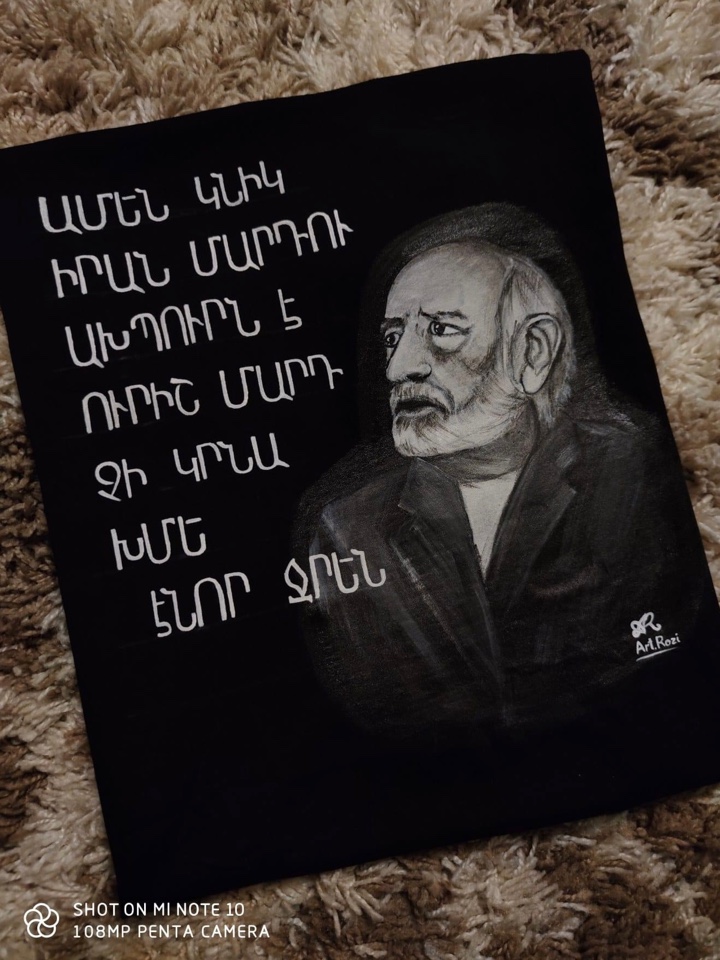 ԱՄԵՆ ԿՆԻԿ
ԻՐԱՆ ՄԱՐԴՈՒ
ԱԽՊՈՒՐՆ Է
ՈՒՐԻՇ ՄԱՐԴ
ՉԻ ԿՐՆԱ
ԽՄԵ
ԷՆՈՐ ՋՐԵՆ
AR
Art.Rozi
SHOT ON MI NOTE 10
108MP PENTA CAMERA